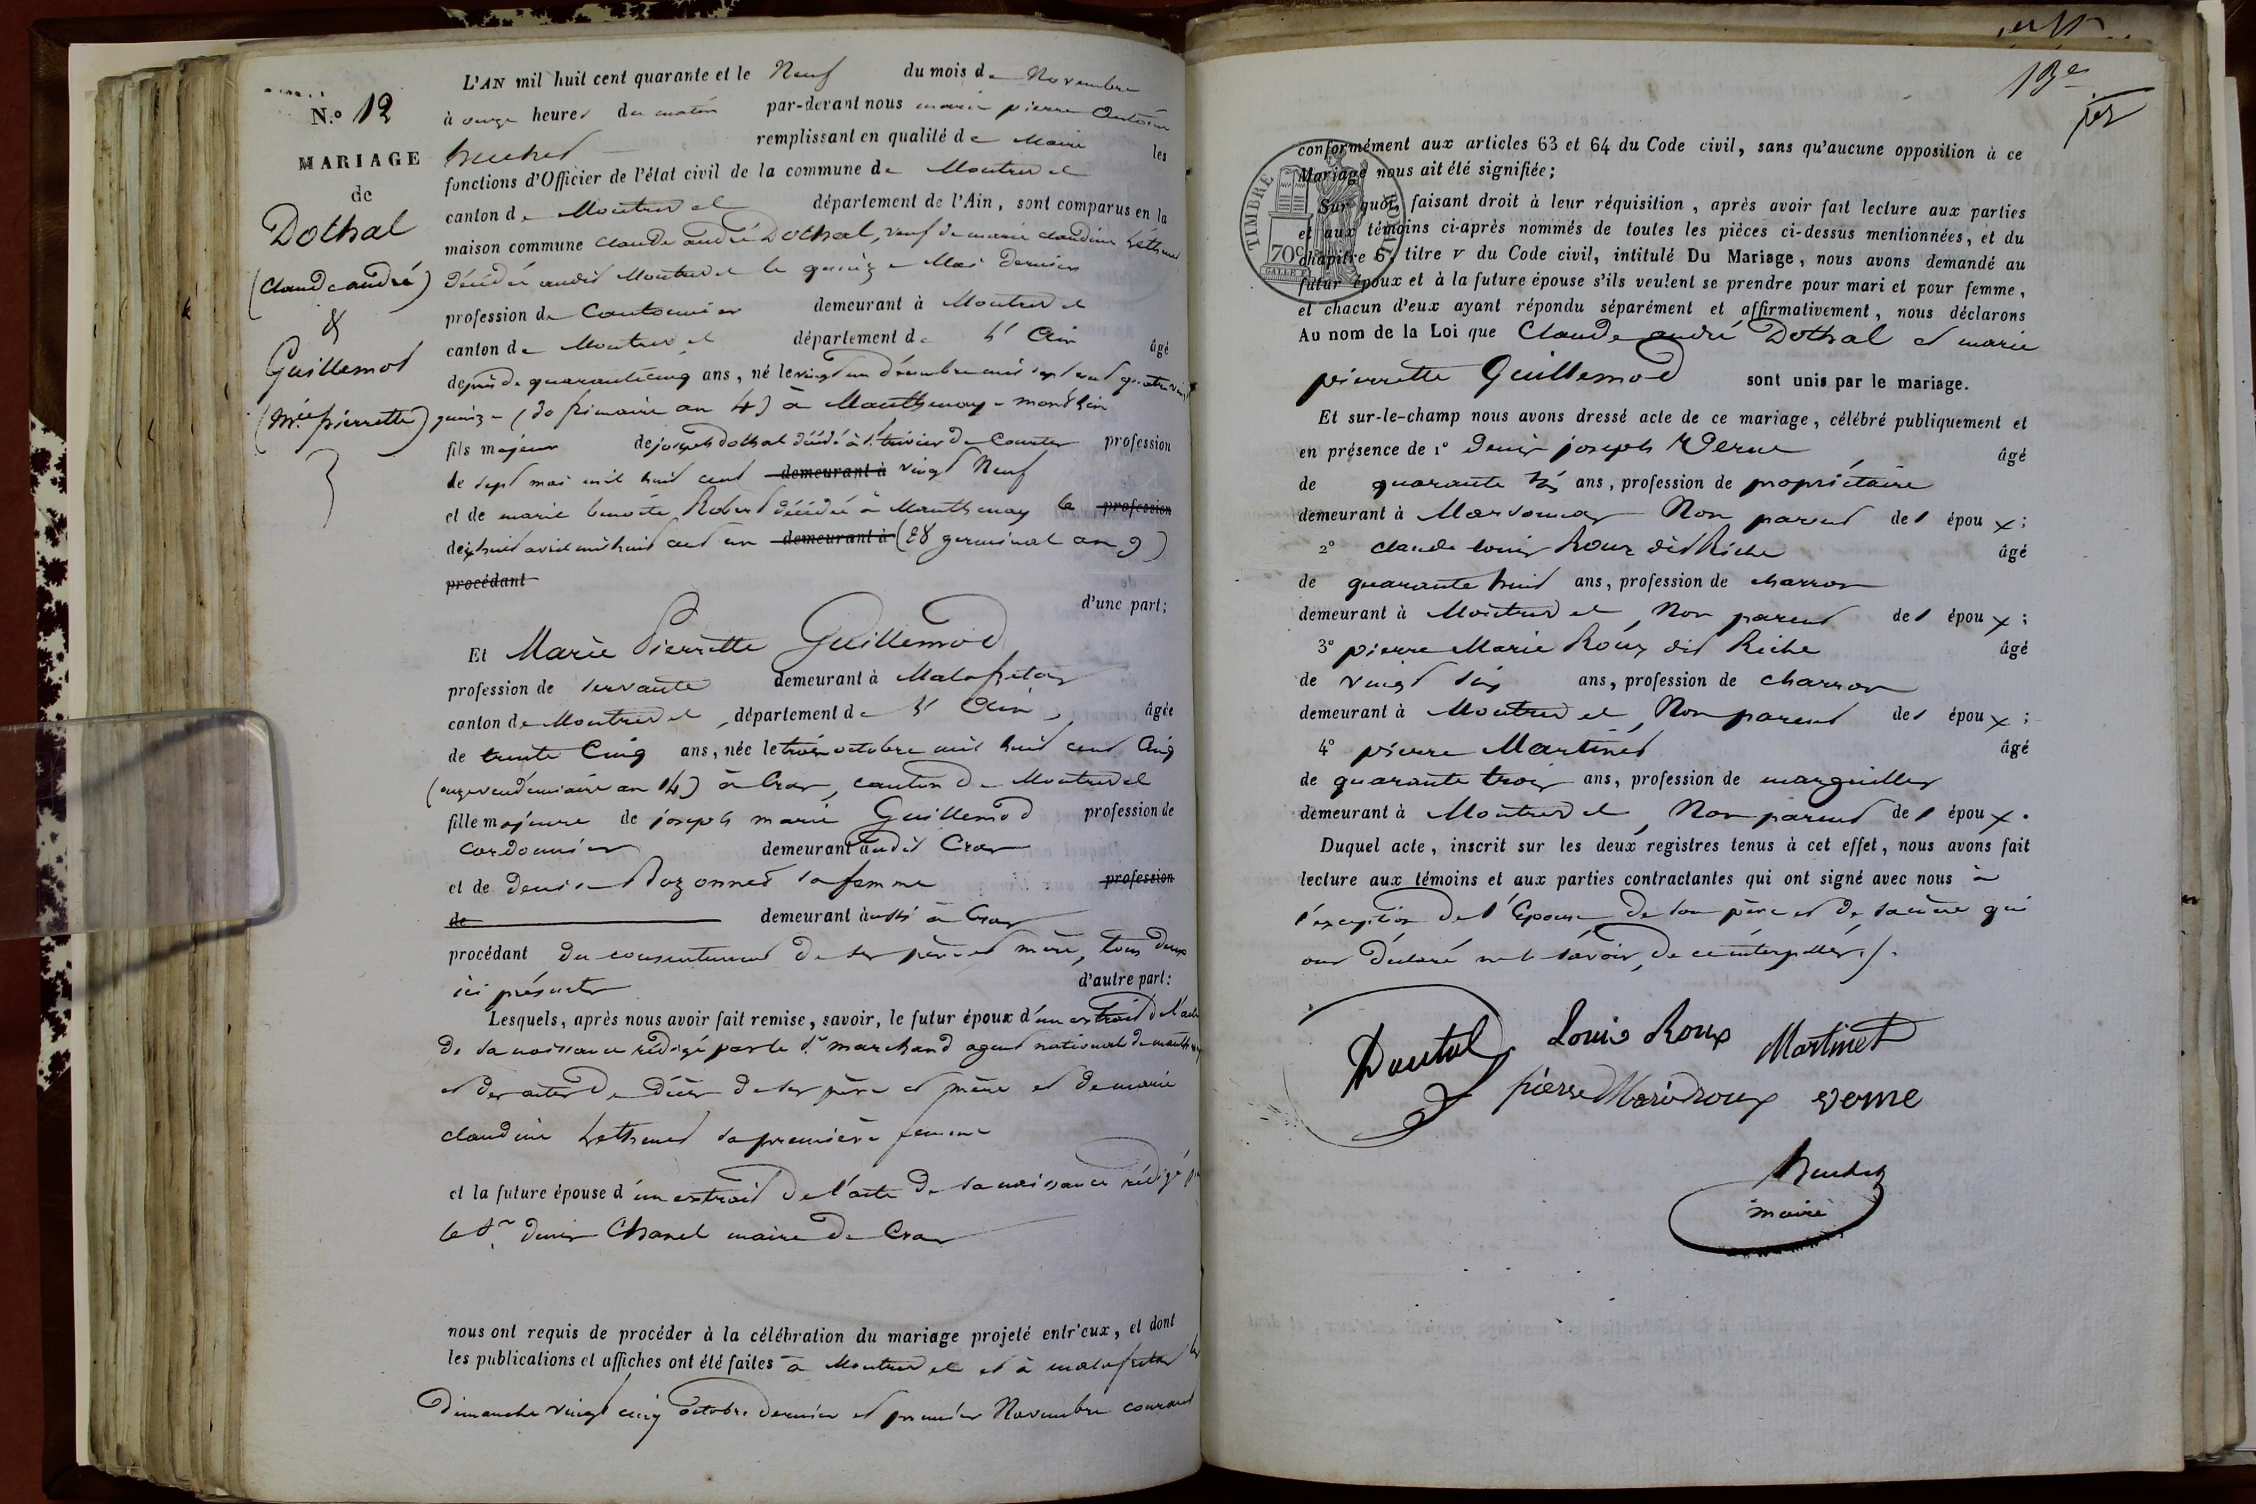 N.º 12
MARIAGE
de
Dothal
(Claude andré)
&
Guillemot
(Mie pierrette)
L'AN mil huit cent quarante et le Neuf du mois de Novembre
à onze heures du matin par-devant nous marie pierre Antoine
huchet remplissant en qualité de Maire les
fonctions d'Officier de l'état civil de la commune de Montrevel
canton de Montrevel département de l'Ain, sont comparus en la
maison commune Claude andré Dothal, veuf de marie claudine
décédée audit Montrevel le quinze Mai dernier
profession de Cantonnier demeurant à Montrevel
canton de Montrevel département de l'Ain âgé
de près de quarante cinq ans, né le vingt un décembre mil sept cent quatre vingt
quinze (30 frimaire an 4) à Manthenay-montlin
fils majeur de joseph Dothal décédé à St. trivier de Courtes profession
de sept mai mil huit cent demeurant à vingt Neuf
et de marie benoite Robert décédée à Manthenay le profession
dix huit avril mil huit cent un demeurant à (28 germinal an 9)
procédant
d'une part;
Et Marie Pierrette Guillemot
profession de servante demeurant à Malafretaz
canton de Montrevel, département de l'Ain, âgée
de trente Cinq ans, née le trois octobre mil huit cent Cinq
(onze vendémiaire an 14) à Cras, canton de Montrevel
fille majeure de joseph marie Guillemot profession de
cordonnier demeurant audit Cras
et de denise sa femme profession
de demeurant aussi à Cras
procédant du consentement de ses père et mère, tous deux
ici présents d'autre part:
Lesquels, après nous avoir fait remise, savoir, le futur époux d'un extrait de l'acte
de sa naissance rédigé par le Sr marchand agent national de
et des actes de décès de ses père et mère et de marie
claudine sa première femme
et la future épouse d'un extrait de l'acte de sa naissance rédigé par
le Sr denis Chanel maire de Cras
nous ont requis de procéder à la célébration du mariage projeté entr'eux, et dont
les publications et affiches ont été faites à Montrevel et à malafretaz les
Dimanche vingt cinq octobre dernier et premier Novembre courant
13e
conformément aux articles 63 et 64 du Code civil, sans qu'aucune opposition à ce
Mariage nous ait été signifiée;
TIMBRE ROYAL
70c
Sur quoi, faisant droit à leur réquisition, après avoir fait lecture aux parties
et aux témoins ci-après nommés de toutes les pièces ci-dessus mentionnées, et du
chapitre 6, titre v du Code civil, intitulé Du Mariage, nous avons demandé au
futur époux et à la future épouse s'ils veulent se prendre pour mari et pour femme,
et chacun d'eux ayant répondu séparément et affirmativement, nous déclarons
Au nom de la Loi que Claude andré Dothal et marie
pierrette Guillemot sont unis par le mariage.
Et sur-le-champ nous avons dressé acte de ce mariage, célébré publiquement et
en présence de 1º Denis joseph Verne âgé
de quarante six ans, profession de propriétaire
demeurant à Marsonnas Non parent des époux;
2º claude louis Roux dit Riche âgé
de quarante huit ans, profession de charron
demeurant à Montrevel, Non parent des époux;
3º pierre Marie Roux dit Riche âgé
de vingt six ans, profession de charron
demeurant à Montrevel, Non parent des époux;
4º pierre Martinet âgé
de quarante trois ans, profession de marguiller
demeurant à Montrevel, Non parent des époux.
Duquel acte, inscrit sur les deux registres tenus à cet effet, nous avons fait
lecture aux témoins et aux parties contractantes qui ont signé avec nous à
l'exception de l'Epouse de son père et de sa mère qui
ont déclaré ne le savoir, de ce interpellés./.
Doutal Louis Roux Martinet
pierre Marie roux verne
huchet
maire